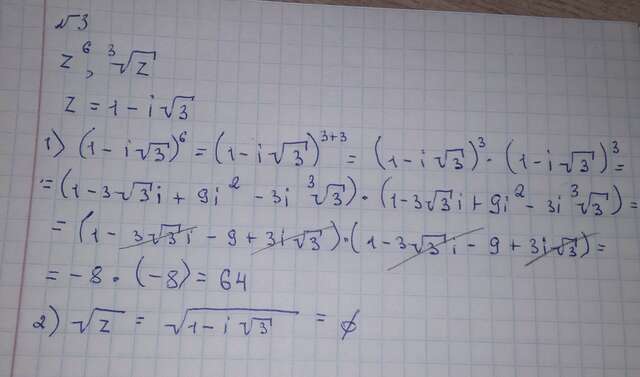 √3
z⁶, ³√z
z = 1 - i√3
1) (1 - i√3)⁶ = (1 - i√3)³⁺³ = (1 - i√3)³ · (1 - i√3)³ =
= (1 - 3√3i + 9i² - 3i³√3) · (1 - 3√3i + 9i² - 3i³√3) =
= (1 - 3√3i - 9 + 3i√3) · (1 - 3√3i - 9 + 3i√3) =
= -8 · (-8) = 64
2) √z = √(1 - i√3) = ∅